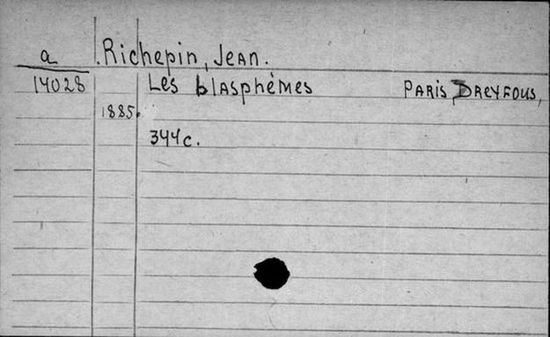 a Richepin, Jean.
14028 Les blasphèmes Paris, Dreyfous,
1885.
344c.